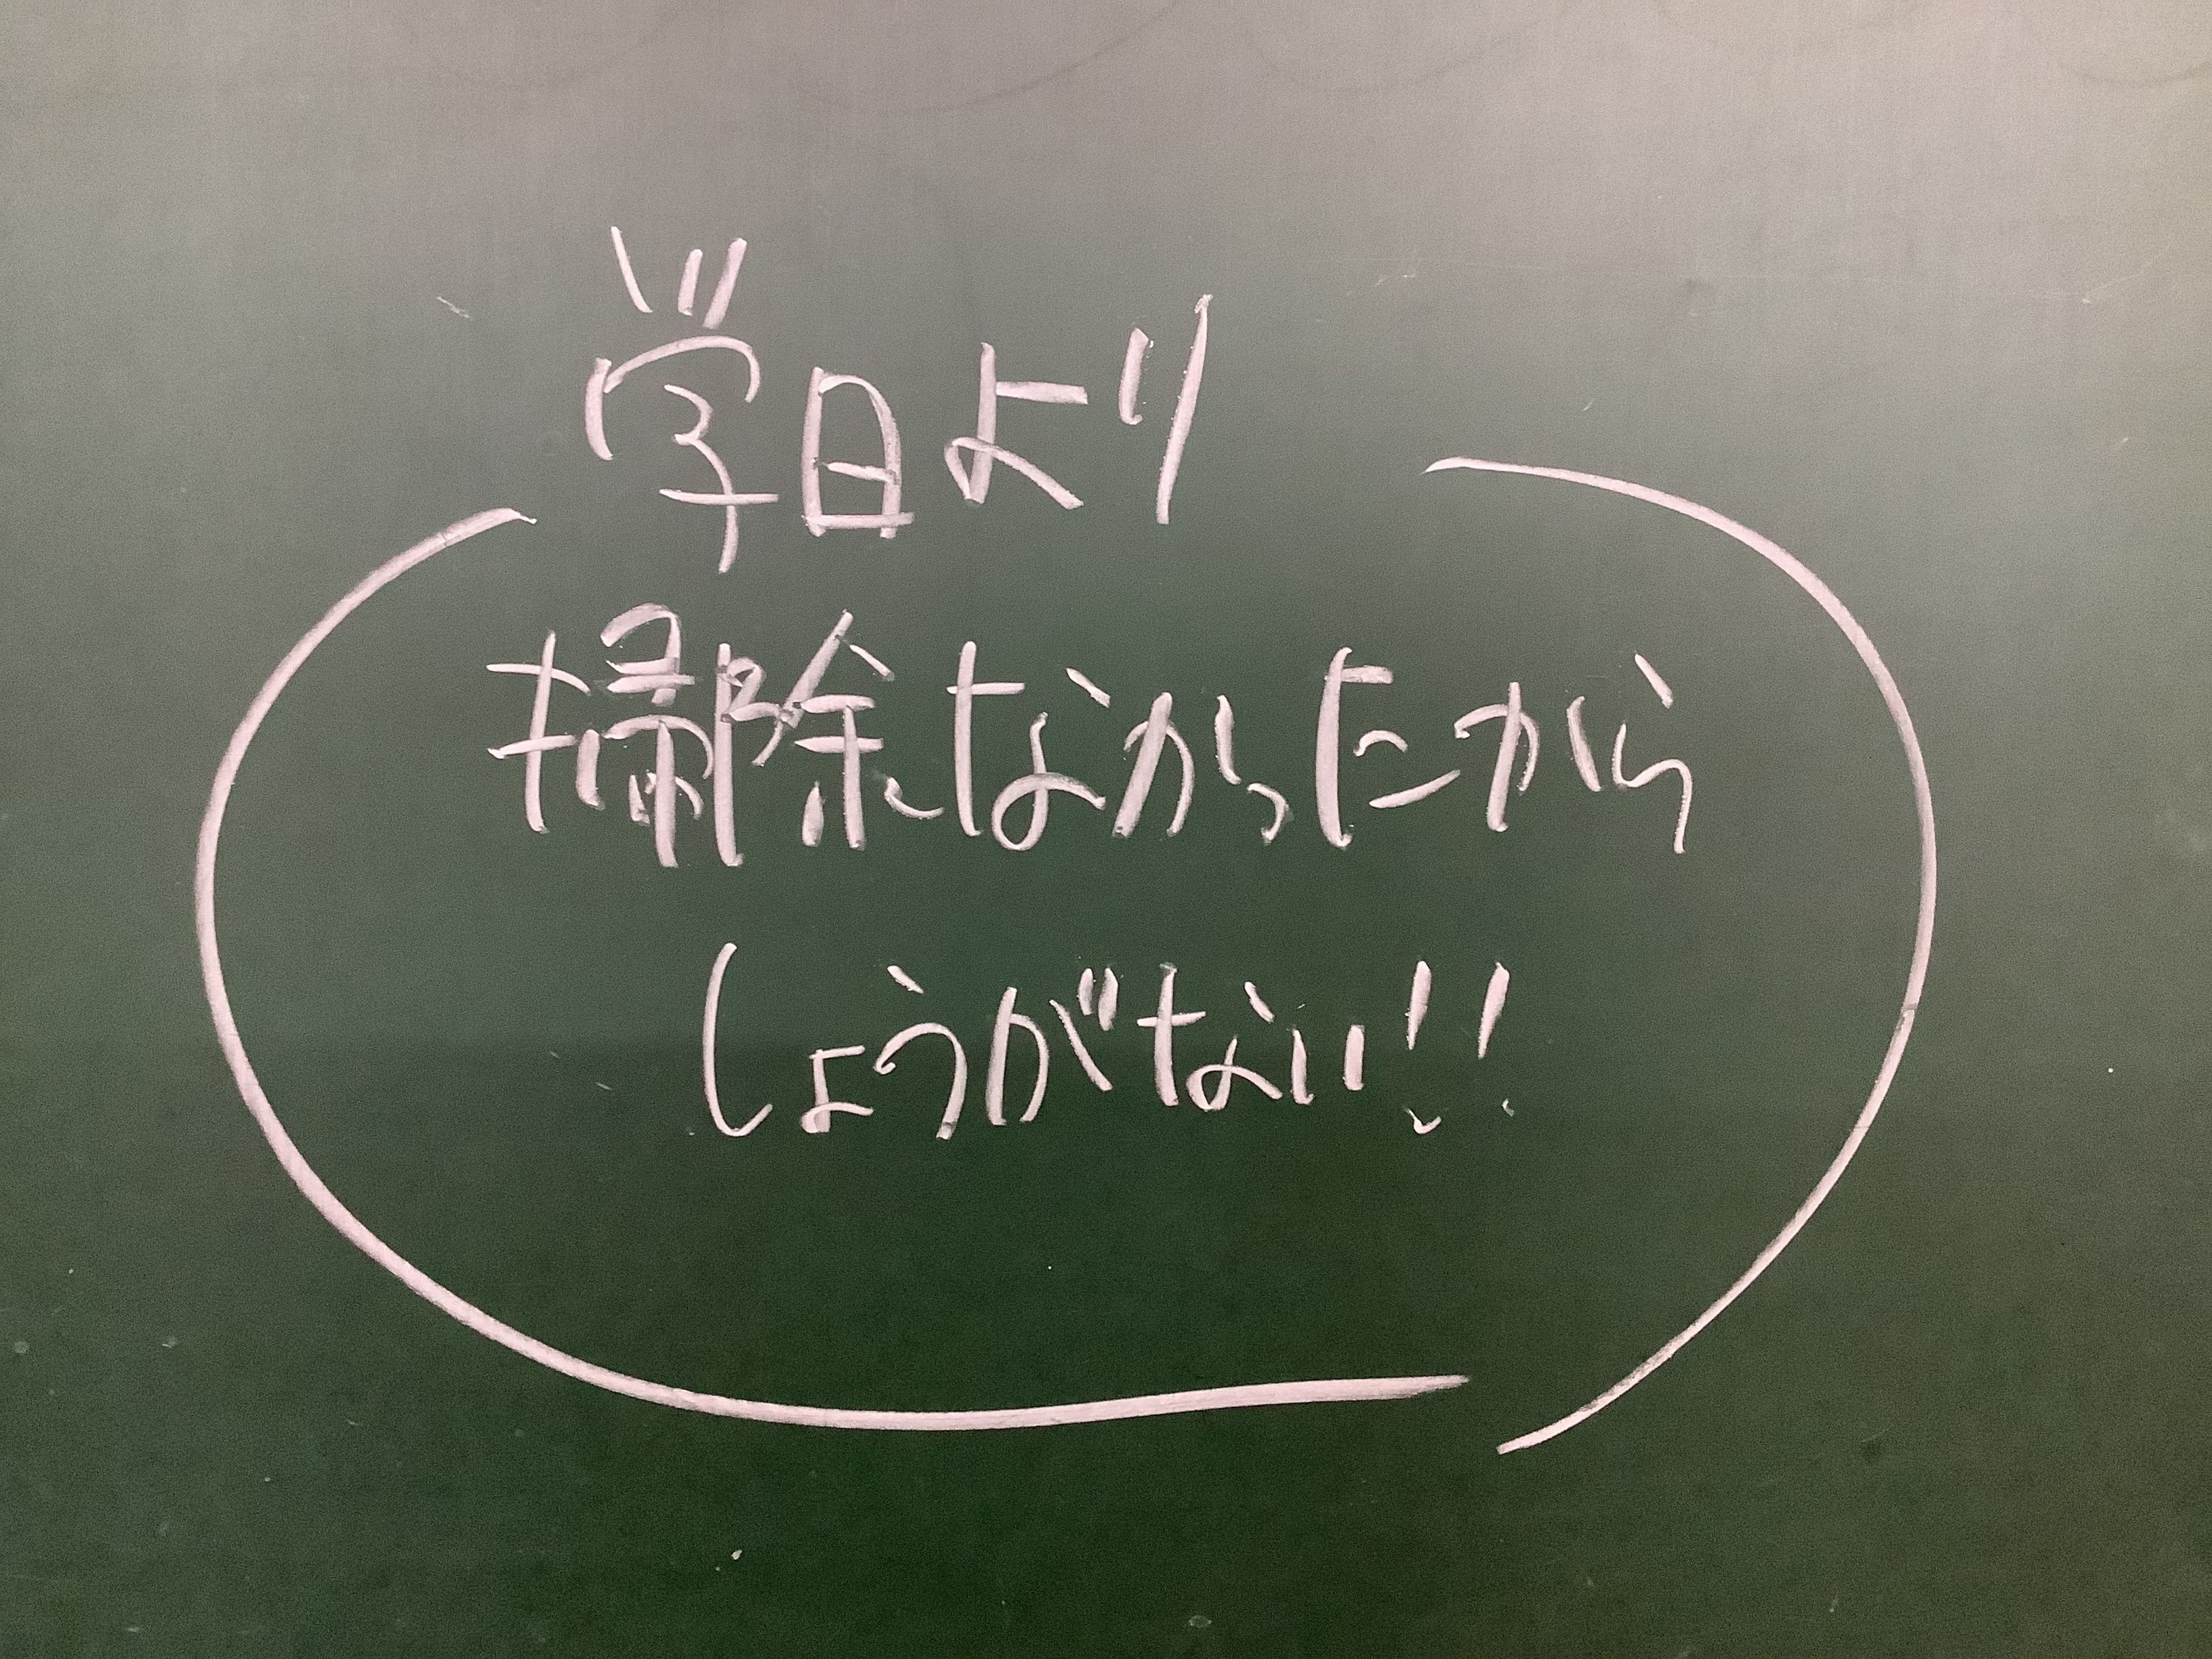 学日より
掃除なかったから
しょうがない!!